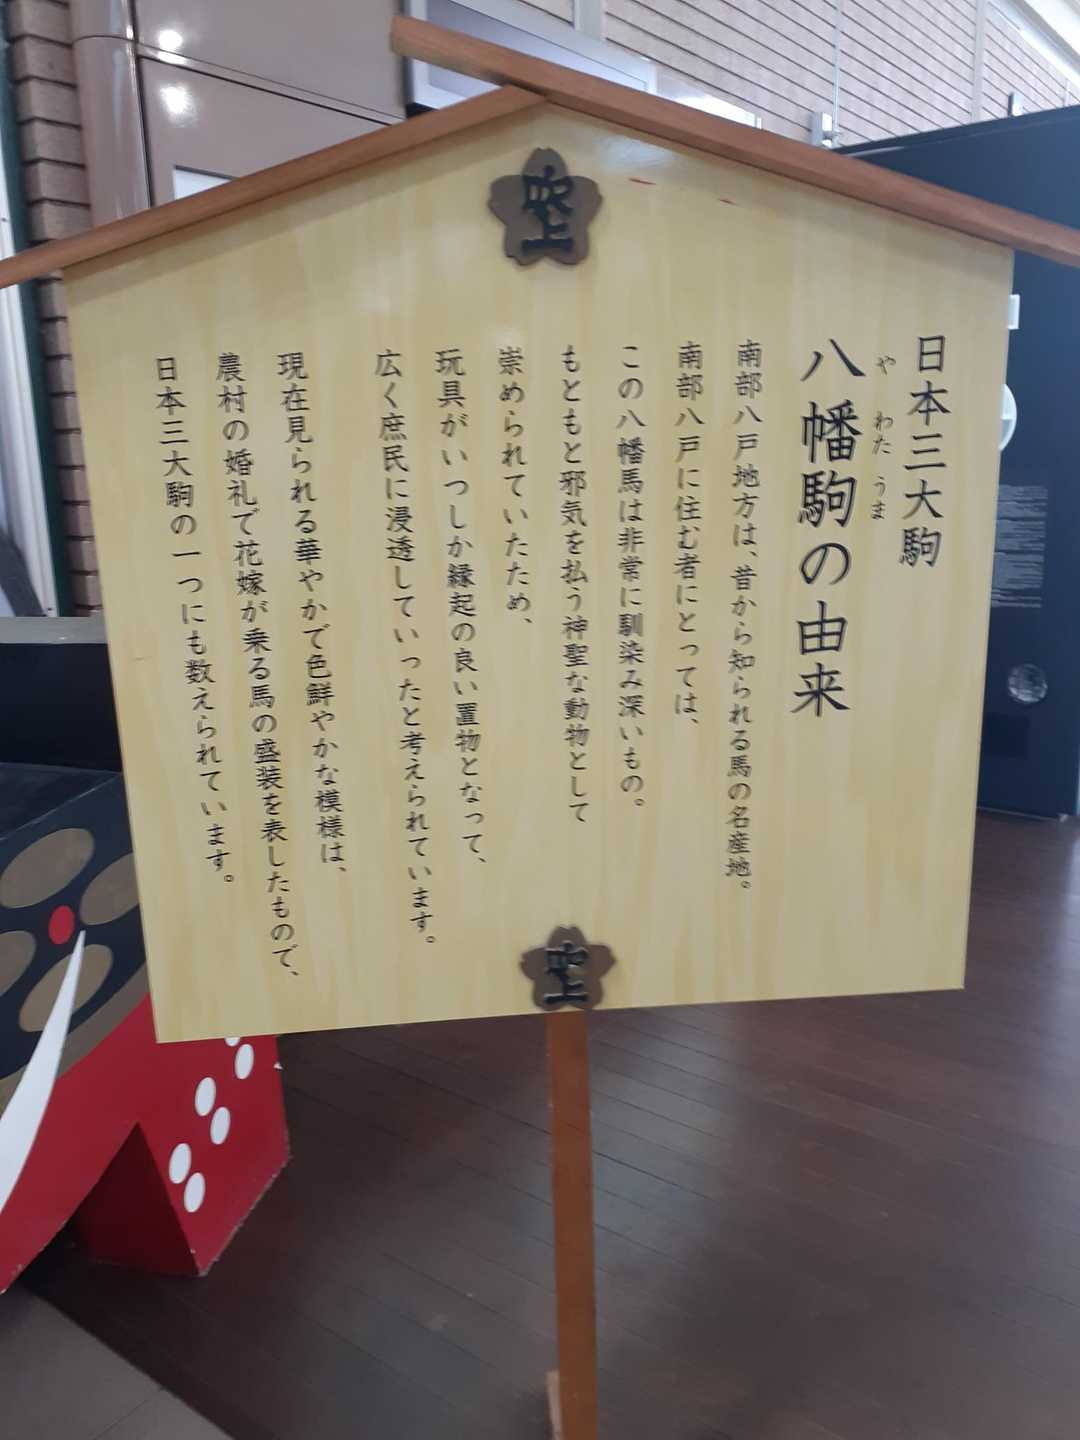 空上
日本三大駒
や わた うま
八幡駒の由来
南部八戸地方は、昔から知られる馬の名産地。
南部八戸に住む者にとっては、
この八幡馬は非常に馴染み深いもの。
もともと邪気を払う神聖な動物として
崇められていたため、
玩具がいつしか縁起の良い置物となって、
広く庶民に浸透していったと考えられています。
現在見られる華やかで色鮮やかな模様は、
農村の婚礼で花嫁が乗る馬の盛装を表したもので、
日本三大駒の一つにも数えられています。
空上